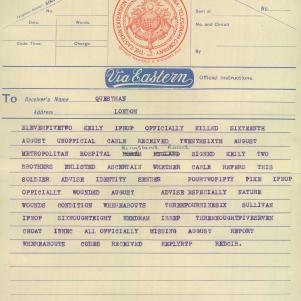 No.
Sent at
No. and Circuit
By
Date.
Words.
Code Time.
Charge.
Via Eastern
Official Instructions.
To Receiver's Name QUESTHAN
Address LONDON
ELEVENFIVETWO KEILY IFHOP OFFICIALLY KILLED SIXTEENTH
AUGUST UNOFFICIAL CABLE RECEIVED TWENTYSIXTH AUGUST
METROPOLITAN HOSPITAL ENGLAND SIGNED KEILY TWO
BROTHERS ENLISTED ASCERTAIN WHETHER CABLE REFERS THIS
SOLDIER ADVISE IDENTITY SENDER FOURTWOFIFTY PIKE IFHOP
OFFICIALLY WOUNDED AUGUST ADVISE ESPECIALLY NATURE
WOUNDS CONDITION WHEREABOUTS THREEFOURNINESIX SULLIVAN
IFHOP SIXNOUGHTEIGHT NEEDHAM THREENOUGHTFIVESEVEN
CHOAT ALL OFFICIALLY MISSING AUGUST REPORT
WHEREABOUTS CODES RECEIVED REPLYRTP REDCIB.